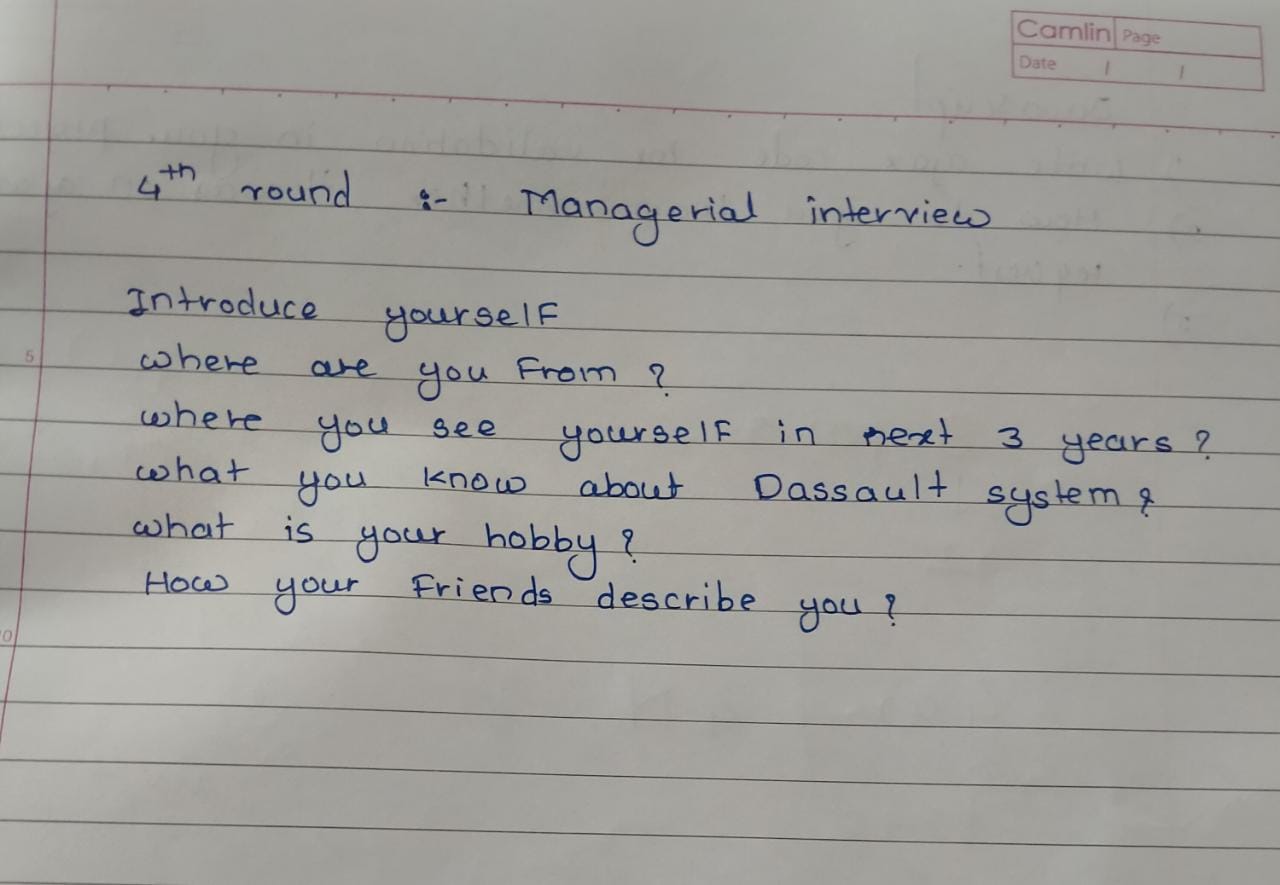 Camlin Page
Date / /
4th round :- Managerial interview
Introduce yourself
where are you From ?
where you see yourself in next 3 years ?
what you know about Dassault system ?
what is your hobby ?
How your Friends describe you ?
5
10